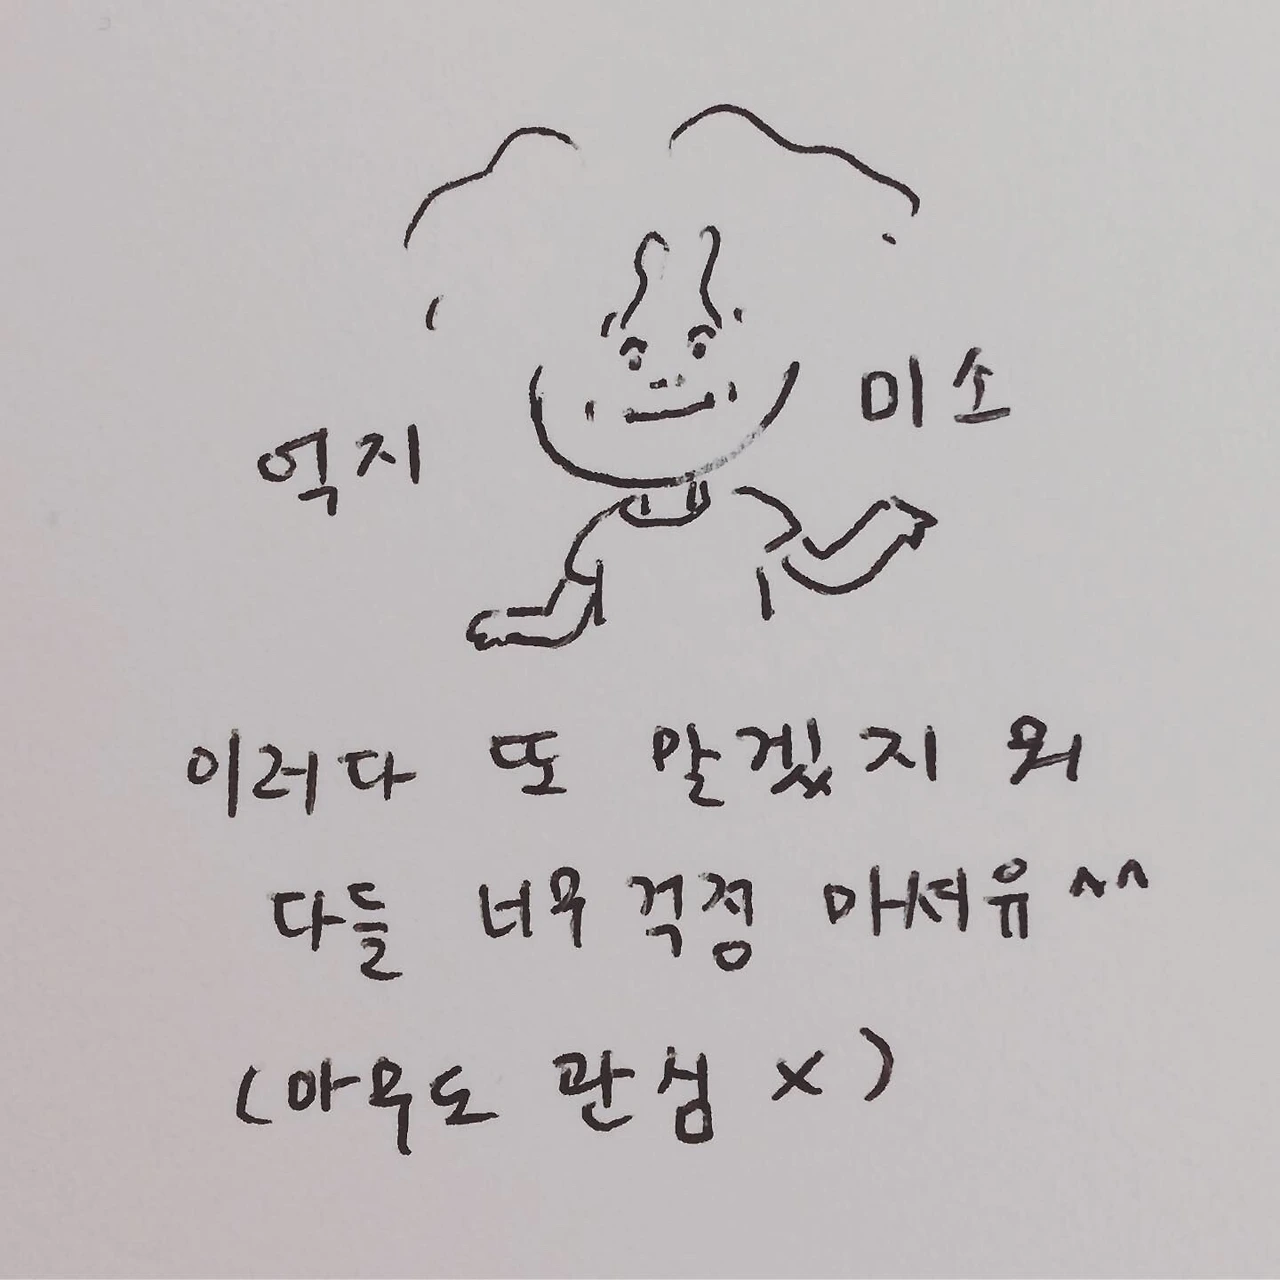 억지 미소
이러다 또 말겠지 뫄
다들 너무 걱정 마셔유^^
(아무도 관심 x)